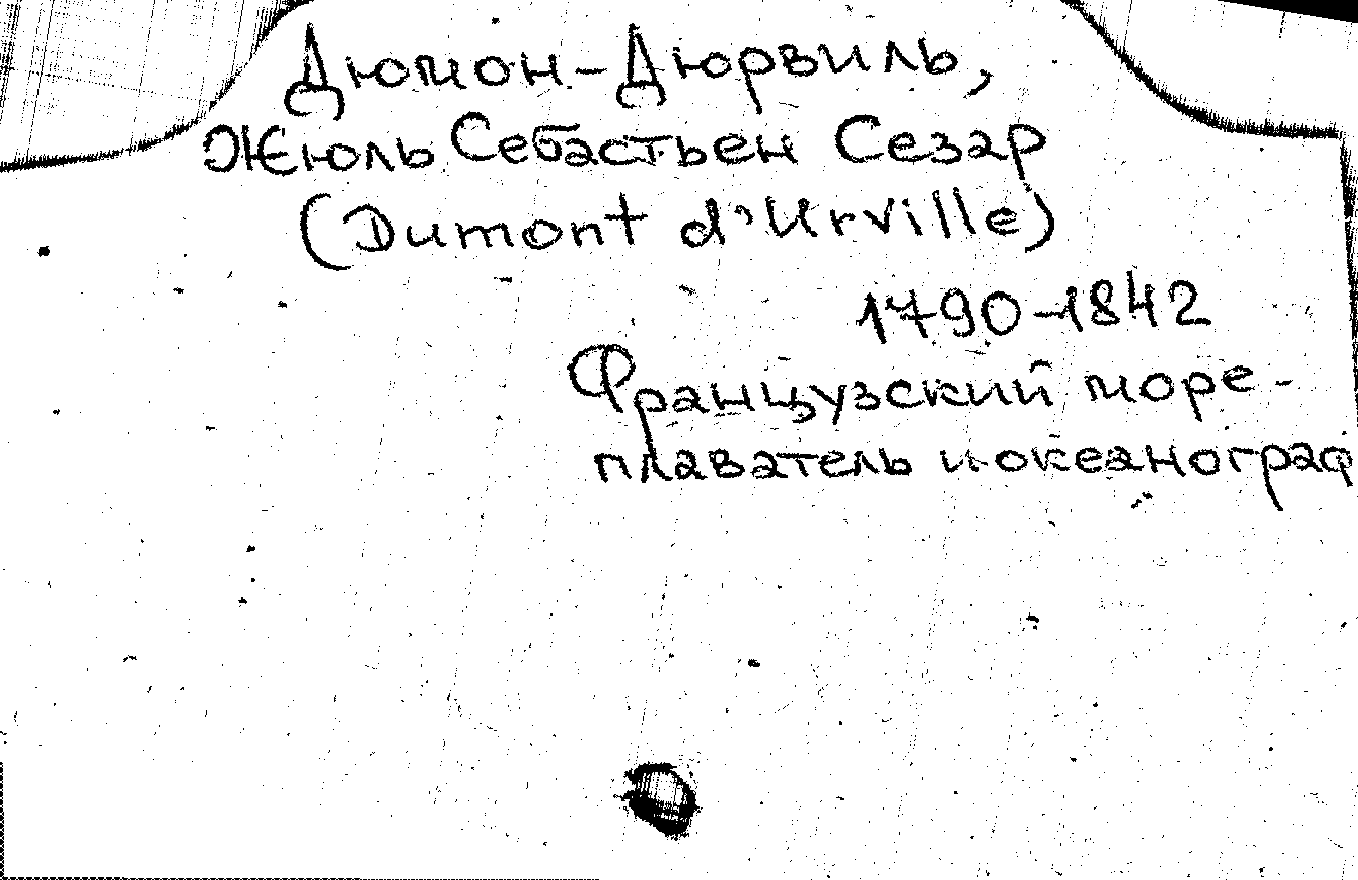 Дюмон-Дюрвиль,
Жюль Себастьен Сезар
(Dumont d'Urville)
1790-1842
Французский море-
плаватель и океанограф